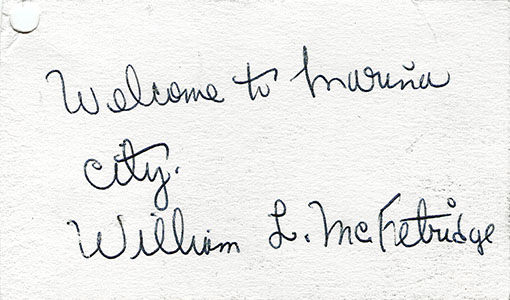 Welcome to Marina
city.
William L. McFetridge